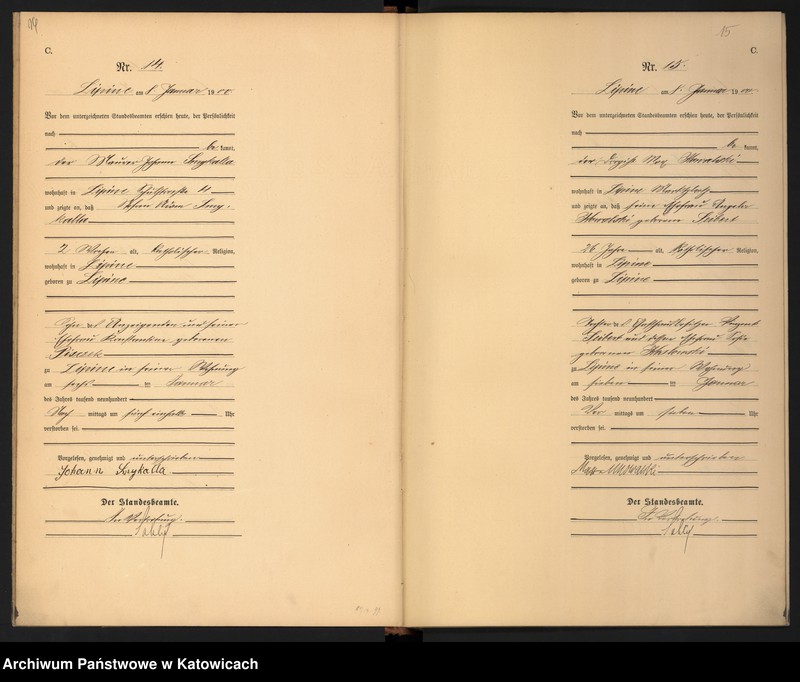 14
C.
Nr. 14.
Lipine am 8. Januar 1900
Vor dem unterzeichneten Standesbeamten erschien heute, der Persönlichkeit
nach
be kannt,
der Maurer Johann Szykalla
wohnhaft in Lipine 11
und zeigte an, daß
kalla
2 Wochen alt, katholischer Religion,
wohnhaft in Lipine
geboren zu Lipine
Sohn des Anzeigenden und seiner
Ehefrau Konstantine geborenen
zu Lipine in seiner Wohnung
am sechs ten Januar
des Jahres tausend neunhundert
Nach mittags um fünf einhalb Uhr
verstorben sei.
Vorgelesen, genehmigt und unterschrieben
Johann Szykalla
Der Standesbeamte.
In Vertretung.
15
C.
Nr. 15.
Lipine am 8. Januar 1900
Vor dem unterzeichneten Standesbeamten erschien heute, der Persönlichkeit
nach
be kannt,
der Max
wohnhaft in Lipine Marktplatz
und zeigte an, daß seine Ehefrau
geborene Seibert
26 Jahre alt, katholischer Religion,
wohnhaft in Lipine
geboren zu Lipine
Tochter des
Seibert und dessen Ehefrau
geborenen
zu Lipine in seiner Wohnung
am sieben ten Januar
des Jahres tausend neunhundert
Vor mittags um sieben Uhr
verstorben sei.
Vorgelesen, genehmigt und unterschrieben
Max
Der Standesbeamte.
In Vertretung.
Archiwum Państwowe w Katowicach